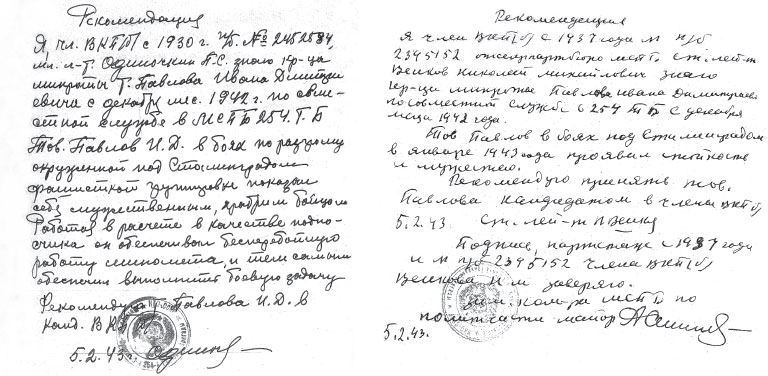 Рекомендация
Я, чл. ВКП(б) с 1930 г. п/б. № 2452594,
мл. л-т. Одиночкин П.С. знаю кр-ца
минроты т. Павлова Ивана Дмитри
евича с декабря мес. 1942 г. по совме-
стной службе в МСПБ 254. Т. Б
Тов. Павлов И. Д. в боях по разгрому
окруженной под Сталинградом
фашистской группировки показал
себя мужественным, храбрым бойцом.
Работая в расчете в качестве подно-
счика он обеспечивал бесперебойную
работу миномета и тем самым
обеспечил выполнить боевую задачу
Рекомендую Павлова И. Д. в
канд. ВКП(б)
5.2.43 г.
Рекомендация
Я член ВКП(б) с 1937 года п/б
2395152 парт бюро мспб ст. лей-т
Венков Николай Михайлович знаю
кр-ца минроты Павлова Ивана Дмитриевича
по совместной службе в 254 ТБ с декабря
м-ца 1942 года.
Тов Павлов в боях под Сталинградом
в январе 1943 года проявил стойкость
и мужество.
Рекомендую принять тов.
Павлова кандидатом в члены ВКП(б)
5.2.43. Ст. лей-т
Подпись, партстаж с 1937 года
и № п/б 2395152 члена ВКП(б)
Венкова Н м заверяю.
Зам ком-ра мспб по
политчасти майор
5.2.43.